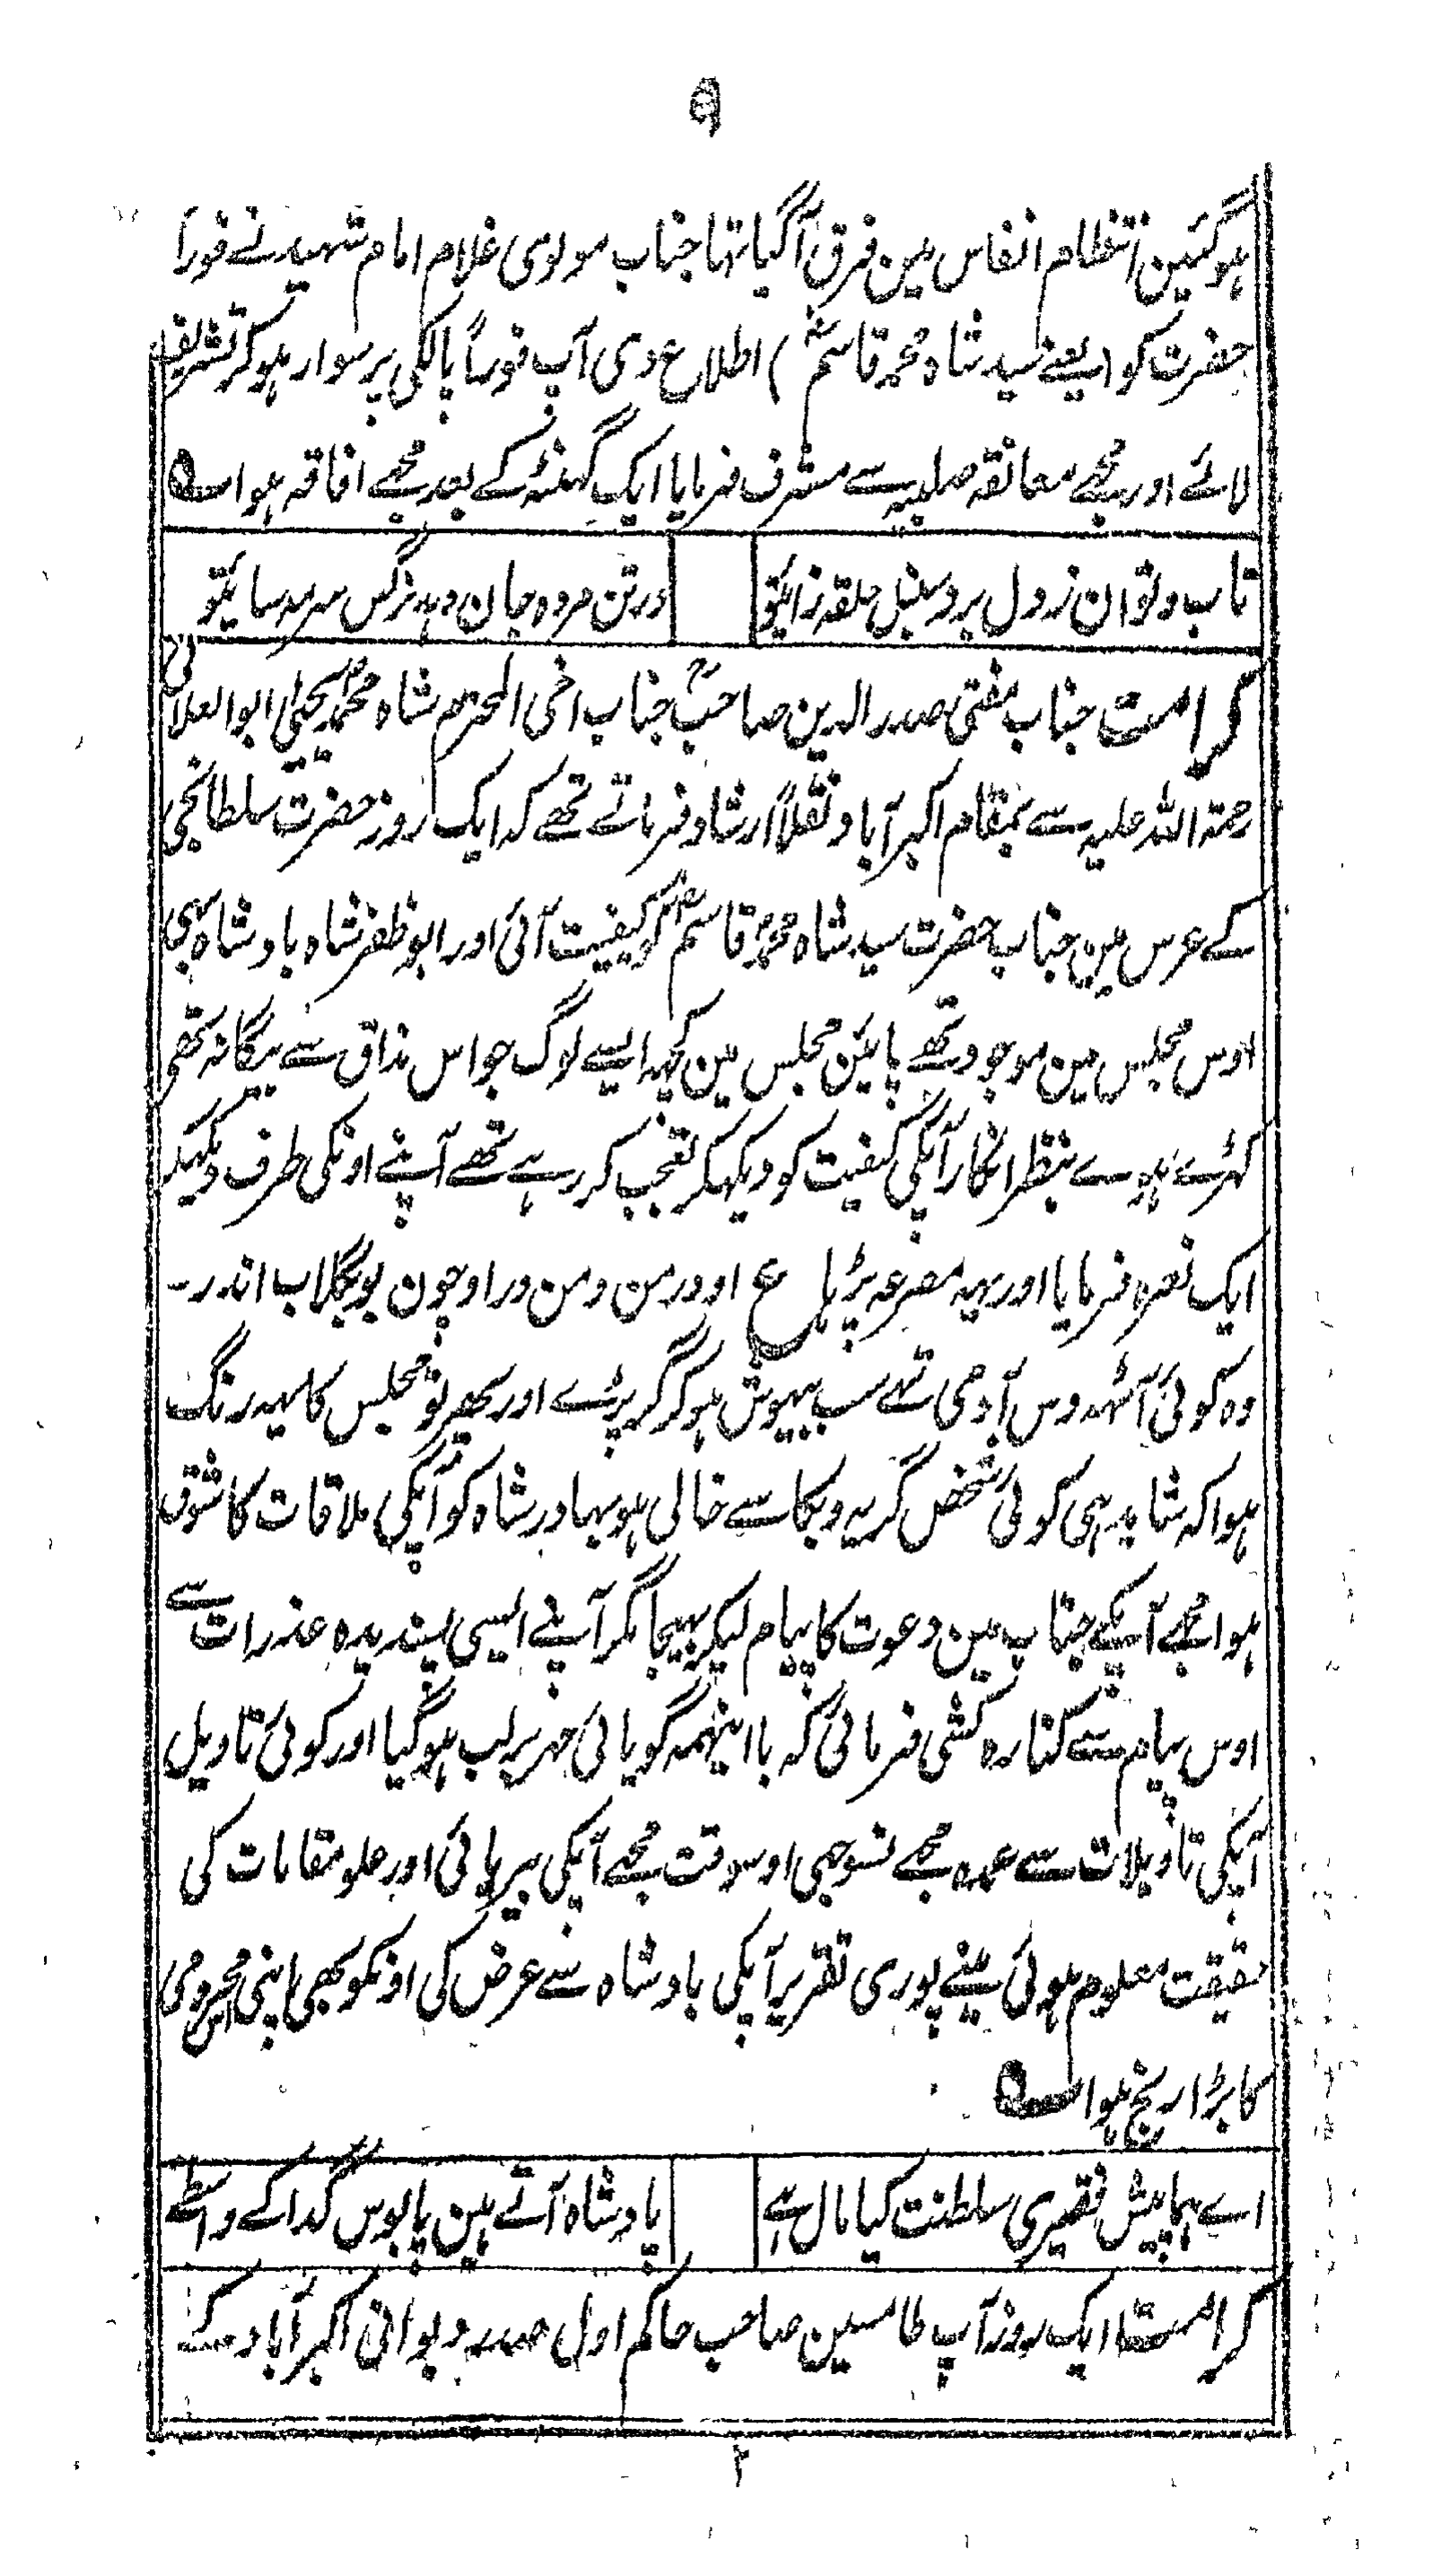 ۹
ہوگئین انتظام انفاس مین فرق آگیا تہا جناب مولوی غلام امام شہید نے فوراً
حضرت کو (یعنے سید شاہ محمد قاسمؒ) اطلاع دی آپ فوراً پالکی پر سوار ہوکر تشریف
لائے اور مجھے معانقہ صلبیہ سے مشرف فرمایا ایک گہنٹہ کے بعد مجھے افاقہ ہوا
تاب و توان ز دل برد سنبل حلقہ زائیتو    در تن مردہ جان دہد نرگس سرمہ سائیتو
کرامت جناب مفتی صدر الدین صاحبؒ جناب اخی المحترم شاہ محمد یحییٰ ابوالعلائی
رحمۃ اللہ علیہ سے بمقام اکبرآباد نقلاً ارشاد فرماتے تھے کہ ایک روز حضرت سلطانجی
کے عرس مین جناب حضرت سید شاہ محمد قاسمؒ کو کیفیت آئی اور ابو ظفر شاہ بادشاہ بہی
اوس مجلس مین موجود تھے پائین مجلس مین کچہ ایسے لوگ جو اس مذاق سے بیگانہ تھی
کہڑے ہوے بنظر انکار آپکی کیفیت کو دیکہکر تعجب کر رہے تھے آپنے اونکی طرف دیکہکر
ایک نعرہ فرمایا اور یہہ مصرعہ پڑہا ع او در من و من در او چون بو بگلاب اندر۔
وہ کوئی آٹہہ دس آدمی تھے سب بیہوش ہوکر گر پڑے اور پھر تو مجلس کا یہہ رنگ
ہوا کہ شاید ہی کوئی شخص گریہ و بکا سے خالی ہو بہادر شاہ کو آپکی ملاقات کا شوق
ہوا مجھے آپکے جناب مین دعوت کا پیام لیکر بہیجا مگر آپنے ایسی پسندیدہ عذرات سے
اوس پیام سے کنارہ کشی فرمائی کہ با اینہمہ گویائی مہر بر لب ہوگیا اور کوئی تاویل
آپکی تاویلات سے عمدہ مجھے نسوجہی اوسوقت مجھے آپکی بیریائی اور علو مقامات کی
حقیقت معلوم ہوئی مینے پوری تقریر آپکی بادشاہ سے عرض کی اونکو بھی اپنی محرومی
کا بڑا رنج ہوا
اے ہما پیش فقیری سلطنت کیا مال ہے    بادشاہ آتے ہین پابوس گدا کے واسطے
کرامت ایک روز آپ طامسین صاحب حاکم اول صدر دیوانی اکبرآباد کے
۲